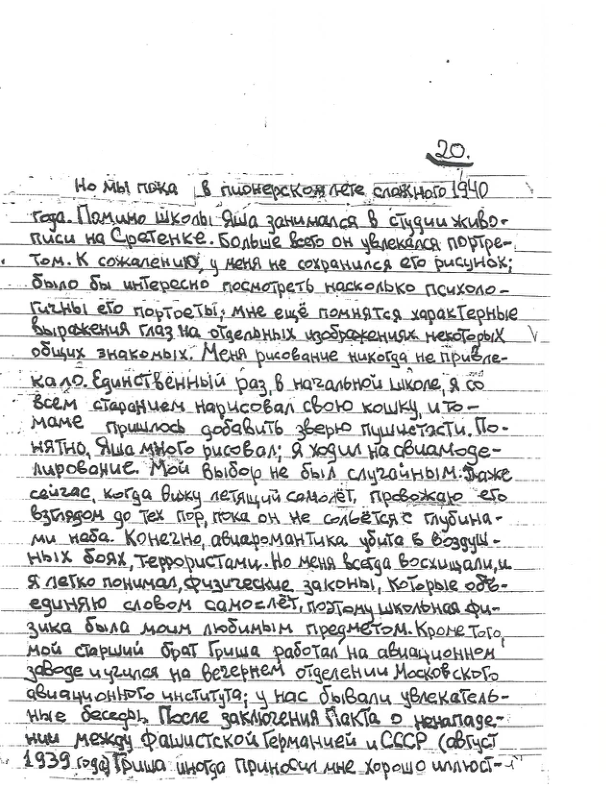 20.
Но мы пока в пионерском лете сложного 1940
года. Помимо школы Яша занимался в студии живо-
писи на Сретенке. Больше всего он увлекался портре-
том. К сожалению, у меня не сохранился его рисунок;
было бы интересно посмотреть насколько психоло-
гичны его портреты; мне ещё помнятся характерные
выражения глаз на отдельных изображениях некоторых
общих знакомых. Меня рисование никогда не привле-
кало. Единственный раз, в начальной школе, я со
всем старанием нарисовал свою кошку, и то-
маме пришлось добавить зверю пушистасти. По-
нятно, Яша много рисовал; я ходил на авиамоде-
лирование. Мой выбор не был случайным: Даже
сейчас, когда вижу летящий самолёт, провожаю его
взглядом до тех пор, пока он не сольётся с глубина-
ми неба. Конечно, авиаромантика убита в воздуш-
ных боях, террористами. Но меня всегда восхищали, и
я легко понимал, физические законы, которые объ-
единяю словом самослёт, поэтому школьная фи-
зика была моим любимым предметом. Кроме того,
мой старший брат Гриша работал на авиационном
заводе и учился на вечернем отделении Московского
авиационного института; у нас бывали увлекатель-
ные беседы. После заключения Пакта о ненападе-
нии между фашистской Германией и СССР (август
1939 года) Гриша иногда приносил мне хорошо иллюст-